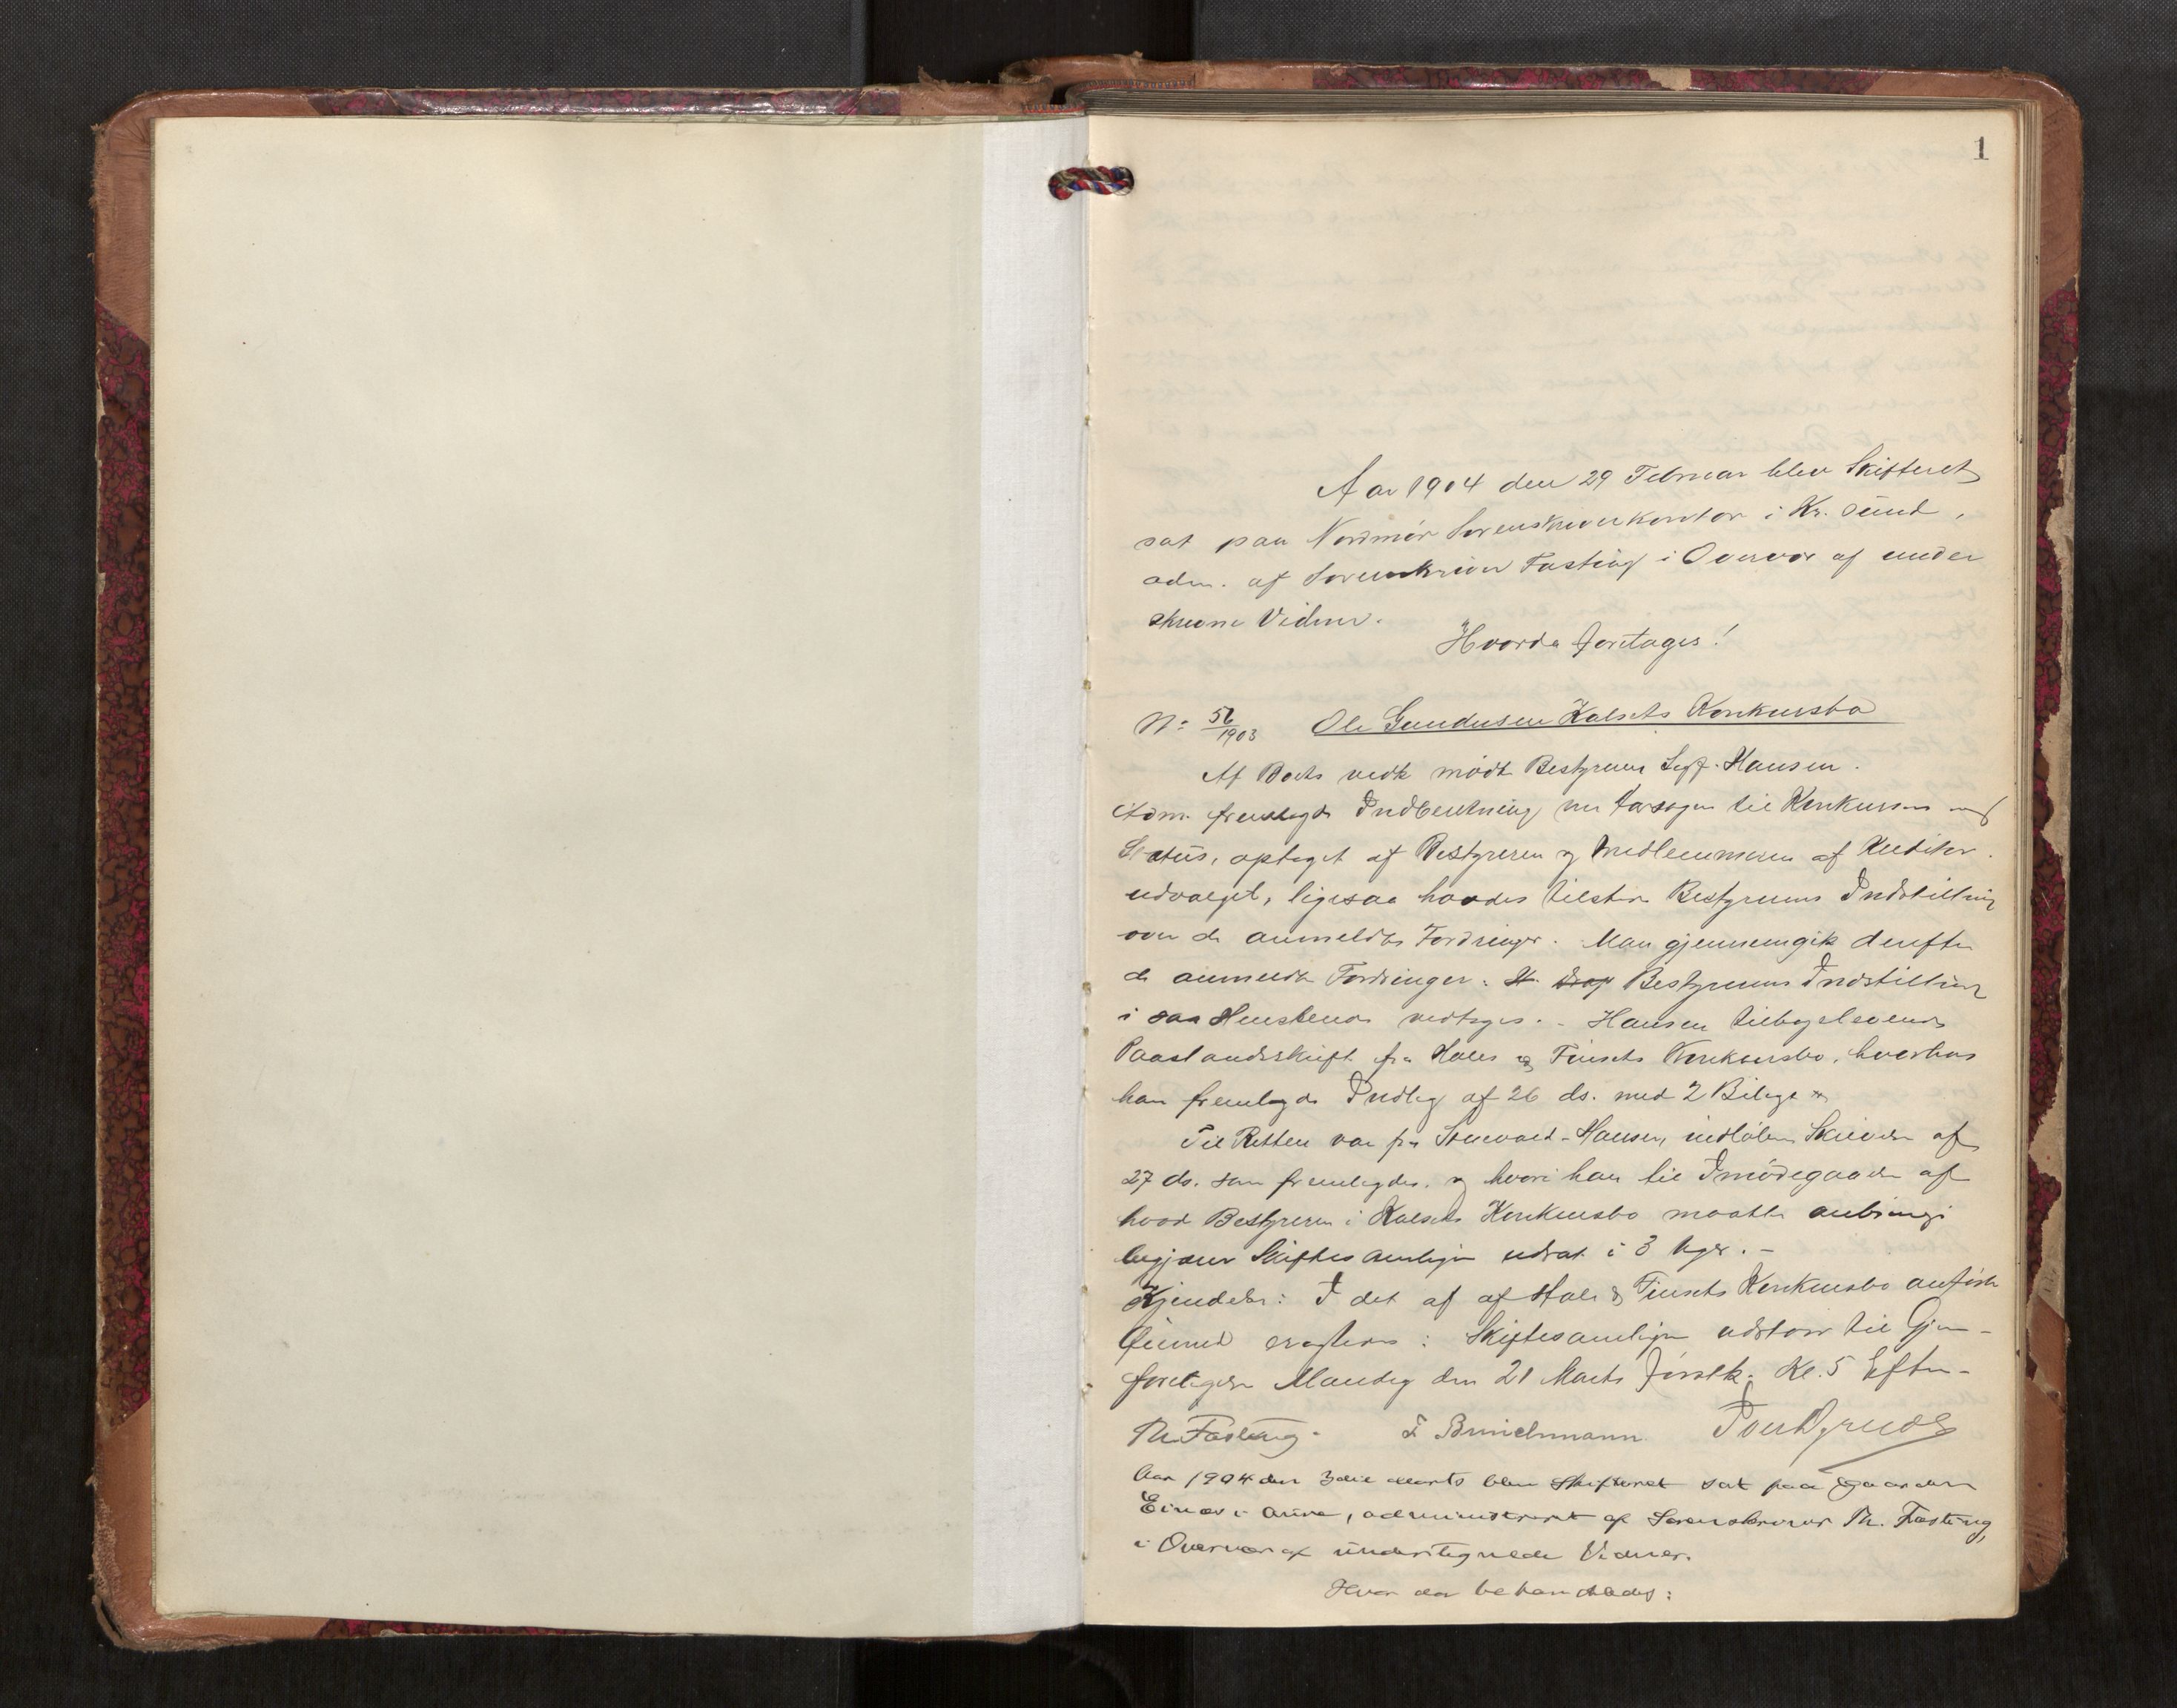 1
Aar 1904 den 29 Februar blev Skifteret
sat paa Nordmør Sorenskriverkontor i Kr. sund,
adm. af Sorenskriver Fasting i Overvær af under
skrevne Vidner.
Hvorda foretages!
No 56/1903 Ole Gundersen Kalsets Konkursbo
Af Boets vedk mødte Bestyreren Sagf. Hansen.
Adm. fremlagde Indberetning om Aarsagen til Konkursen med
Status, optaget af Bestyreren og Medlemmerne af Kreditor
udvalget, ligesaa havdes tilstede Bestyrerens Indstilling
over de anmeldte Fordringer. Man gjennemgik derefter
de anmeldte Fordringer. Bestyrerens Indstilling
i saa Henseende vedtages. - Hansen tilbageleverede
Paastandsskrift fra Hals & Finsets Konkursbo, hvorhos
han fremlagde Indlæg af 26 ds. med 2 Bilage
Til Retten var fra Hansen, indløbet Skrivelse af
27 ds. som fremlagdes, og hvori han til Imødegaaelse af
hvad Bestyreren i Kalsets Konkursbo maatte anbringe
begjærer Skiftesamlingen udsat i 3 Uger. -
Kjendelse: I det af af Hals & Finsets Konkursbo anførte
eragtedes: Skiftesamlingen udstaar til Gjen-
foretagelse Mandag den 21 Marts førstk. Kl. 5 Efter-
Th. Fasting. F Brinchmann
Aar 1904 den 3die Marts blev Skifteret sat paa Gaarden
i Aure, administreret af Sorenskriver Th. Fasting,
i Overvær af undertegnede Vidner.
Hvor da behandledes: